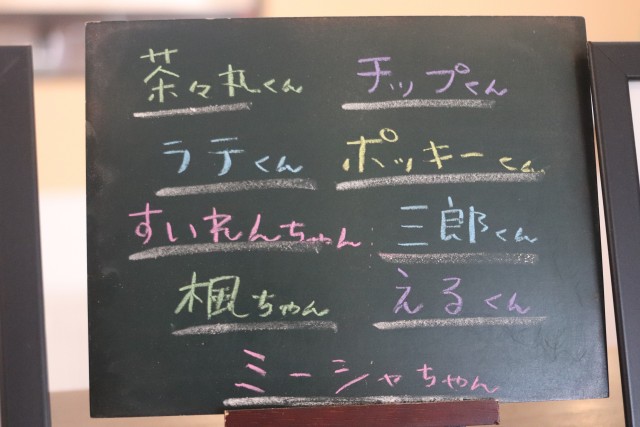 茶々丸くん チップくん
ラテくん ポッキーくん
すいれんちゃん 三郎くん
楓ちゃん えるくん
ミージャちゃん